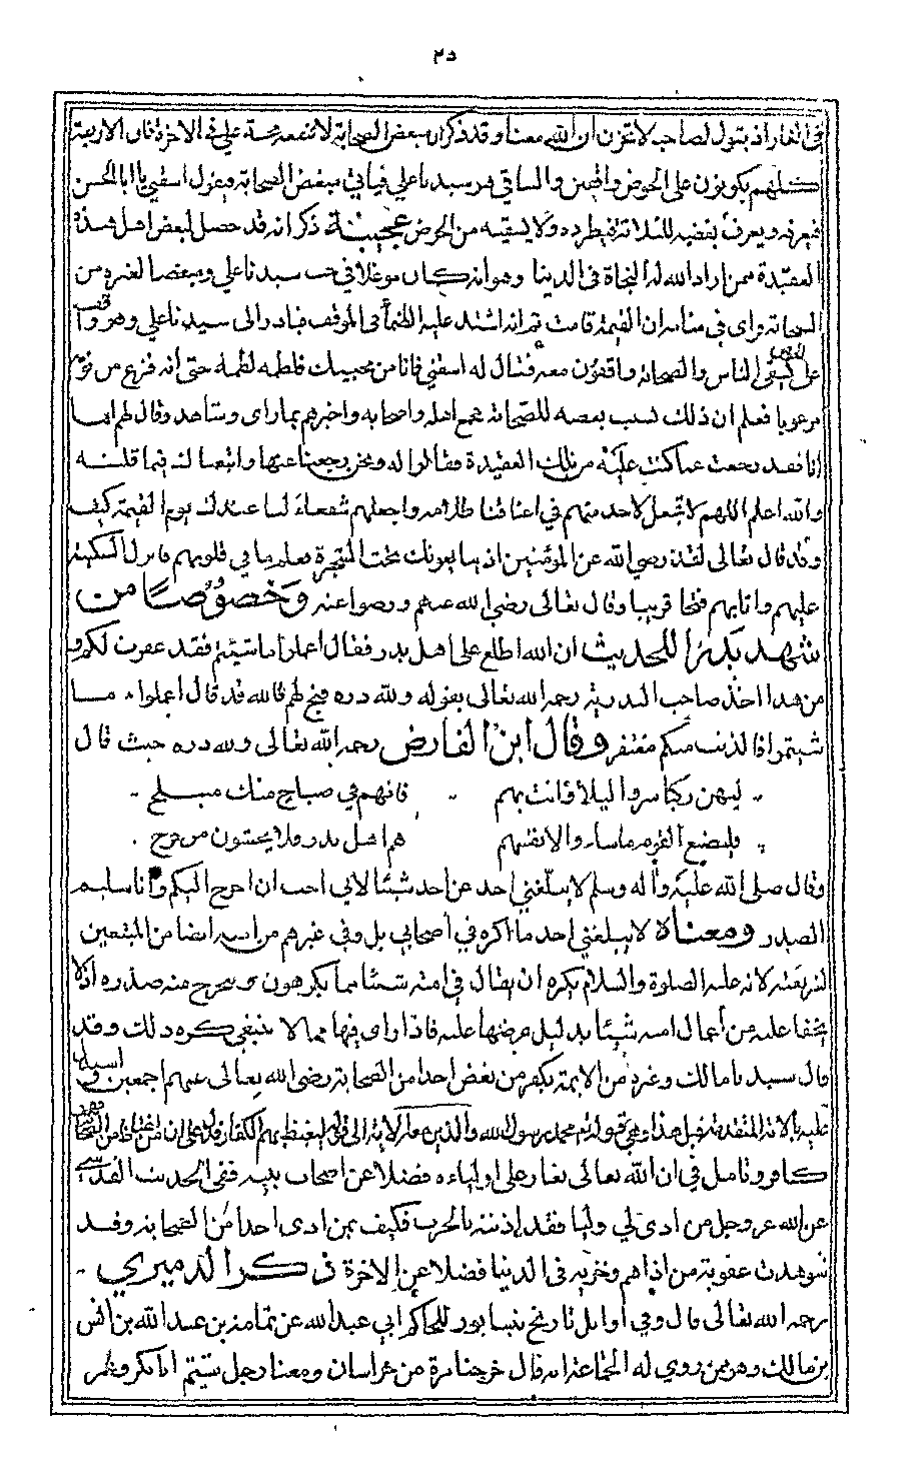 ٢٥
في الغار اذ يقول لصاحبه لا تحزن ان الله معنا وقد ذكر ان بعض الصحابة لا تنفعه محبة علي في الاخرة فان الاربعة
كلهم يكونون على الحوض والساقي هو سيدنا علي فيأتي مبغض الصحابة ويقول اسقني يا ابا الحسن
فيعرفه ويعرف بغضه للثلاثة فيطرده ولا يسقيه من الحوض عجيبة ذكر انه قد حصل لبعض اهل هذه
العقيدة ممن اراد الله له النجاة في الدنيا وهو انه كان موغلا في حب سيدنا علي ومبغضا لغيره من
الصحابة فراى في منامه ان القيمة قامت ثم انه اشتد عليه الظمأ في الموقف فبادر الى سيدنا علي وهو واقف
على الحوض يسقي الناس والصحابة واقفون معه فقال له اسقني فانا من محبيك فلطمه لطمة حتى انه فزع من نومه
مرعوبا فعلم ان ذلك لسبب بغضه للصحابة فجمع اهله واصحابه واخبرهم بما راى وشاهد وقال لهم اما
انا فقد رجعت عما كنت عليه من تلك العقيدة فقالوا له ونحن رجعنا عنها واتبعنا لك فيما قلته
والله اعلم اللهم لا تجعل لاحد منهم في اعناقنا ظلامه واجعلهم شفعاء لنا عندك يوم القيمة كيف
وقد قال تعالى لقد رضي الله عن المؤمنين اذ يبايعونك تحت الشجرة فعلم ما في قلوبهم فانزل السكينة
عليهم واثابهم فتحا قريبا وقال تعالى رضي الله عنهم ورضوا عنه وخصوصا من
شهد بدرا للحديث ان الله اطلع على اهل بدر فقال اعملوا ما شيتم فقد غفرت لكم و
من هذا اخذ صاحب البدرية رحمه الله تعالى بقوله ولله دره فبخ لهم فالله قد قال اعملوا ما
شيتموا فالذنب منكم مغتفر وقال ابن الفارض رحمه الله تعالى ولله دره حيث قال
ليهن ركبا سروا ليلا وانت بهم فانهم في صباح منك منبلج
فليصنع القوم ما شاء والانفسهم هم اهل بدر فلا يخشون من حرج
وقال صلى الله عليه وآله وسلم لا يبلغني احد عن احد شيئا لاني احب ان اخرج اليكم وانا سليم
الصدر ومعناه لا يبلغني احد ما اكره في اصحابي بل وفي غيرهم من امته ايضا من المتبعين
لشريعته لانه عليه الصلوة والسلام يكره ان يقال في امته شيئا مما يكرهون ويحرج منه صدره اذ لا
يخفا عليه من أعمال امته شيئا بدليل عرضها عليه فاذا راى فيها مما لا ينبغي كره ذلك وقد
قال سيدنا مالك وغيره من الايمة بكفر من بغض احدا من الصحابة رضي الله تعالى عنهم اجمعين
عليه بالاية المتقدمة قبل هذا وهي قوله تعالى محمد رسول الله والذين معه الاية الى قوله ليغيظ بهم الكفار فدل على ان من اغتاظ من الصحابة
كافر وتأمل في ان الله تعالى يغار على اولياءه فضلا عن اصحاب نبيه ففي الحديث القدسي
عن الله عز وجل من اذى لي وليا فقد اذنته بالحرب فكيف بمن اذى احدا من الصحابة وقد
شوهدت عقوبة من اذاهم وخزيه في الدنيا فضلا عن الاخرة ذكر الدميري
رحمه الله تعالى قال وفي اوايل تاريخ نيسابور للحاكم ابي عبد الله عن ثمامة بن عبد الله بن انس
بن مالك وهو ممن روى له الجماعة انه قال خرجنا مرة من خراسان ومعنا رجل يشتم ابا بكر وعمر